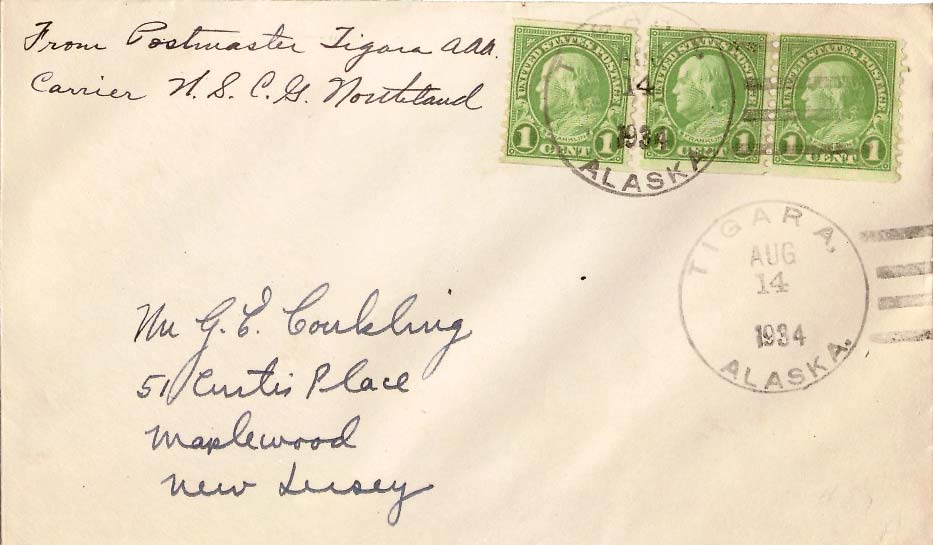 From Postmaster Tigara aaa.
Carrier N. S. C. G. Northland
UNITED STATES POSTAGE
FRANKLIN
1 CENT 1
UNITED STATES POSTAGE
FRANKLIN
1 CENT 1
UNITED STATES POSTAGE
1 CENT 1
14
1934
ALASKA
TIGARA,
AUG
14
1934
ALASKA.
Mr G. E. Conkling
51 Curtis Place
Maplewood
New Jersey